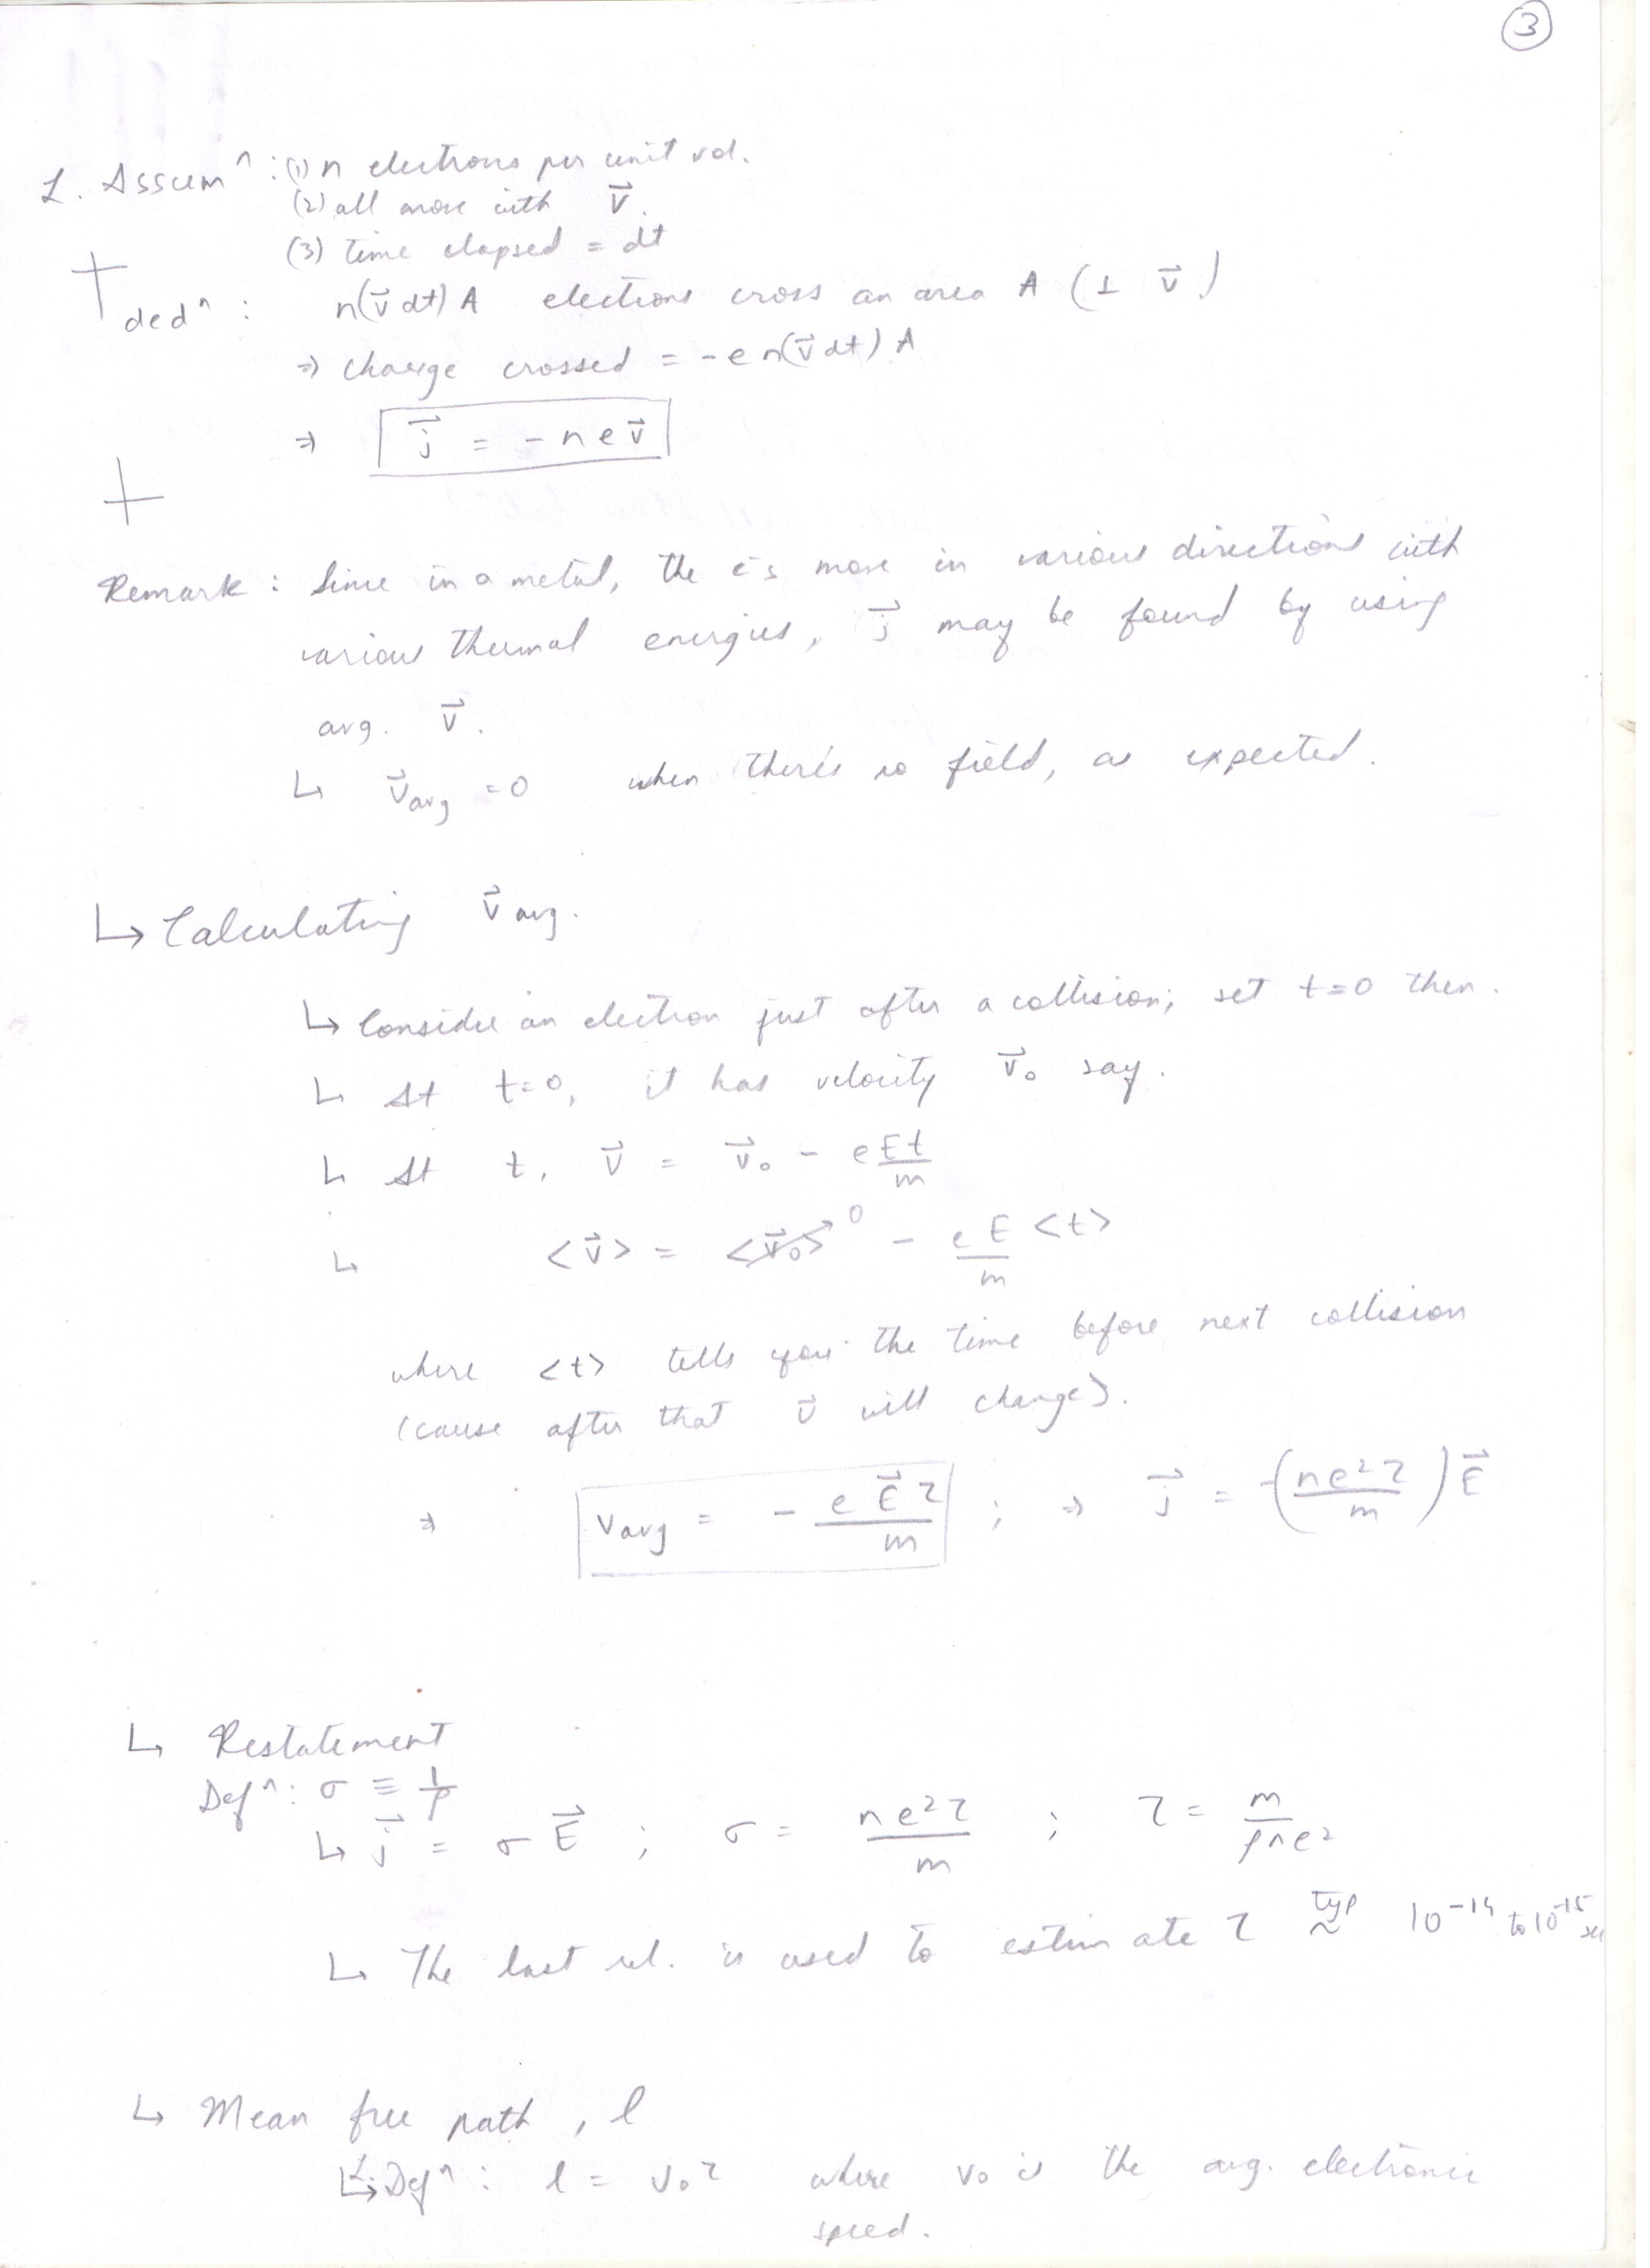 3
L. Assumⁿ : (1) n electrons per unit vol.
(2) all move with v⃗.
(3) time elapsed = dt
dedⁿ : n(v⃗ dt) A electrons cross an area A (⊥ v⃗)
⇒ charge crossed = -e n(v⃗ dt) A
⇒ j⃗ = - n e v⃗
Remark : Since in a metal, the e⁻s move in various directions with
various thermal energies, j⃗ may be found by using
avg. v⃗.
↳ v⃗avg = 0 when there's no field, as expected.
↳ Calculating v⃗avg.
↳ Consider an electron just after a collision; set t=0 then.
↳ At t=0, it has velocity v⃗₀ say.
↳ At t, v⃗ = v⃗₀ - eEt/m
↳ <v⃗> = <v⃗₀>⁰ - eE/m <t>
where <t> tells you the time before next collision
(cause after that v⃗ will change).
⇒ vavg = - eE⃗τ/m ; ⇒ j⃗ = -(ne²τ/m) E⃗
↳ Restatement
Defⁿ: σ ≡ 1/ρ
↳ j⃗ = σ E⃗ ; σ = ne²τ/m ; τ = m/ρne²
↳ The last rel. is used to estimate τ typ ~ 10⁻¹⁴ to 10⁻¹⁵ sec
↳ Mean free path, l
↳ Defⁿ : l = v₀τ where v₀ is the avg. electronic
speed.